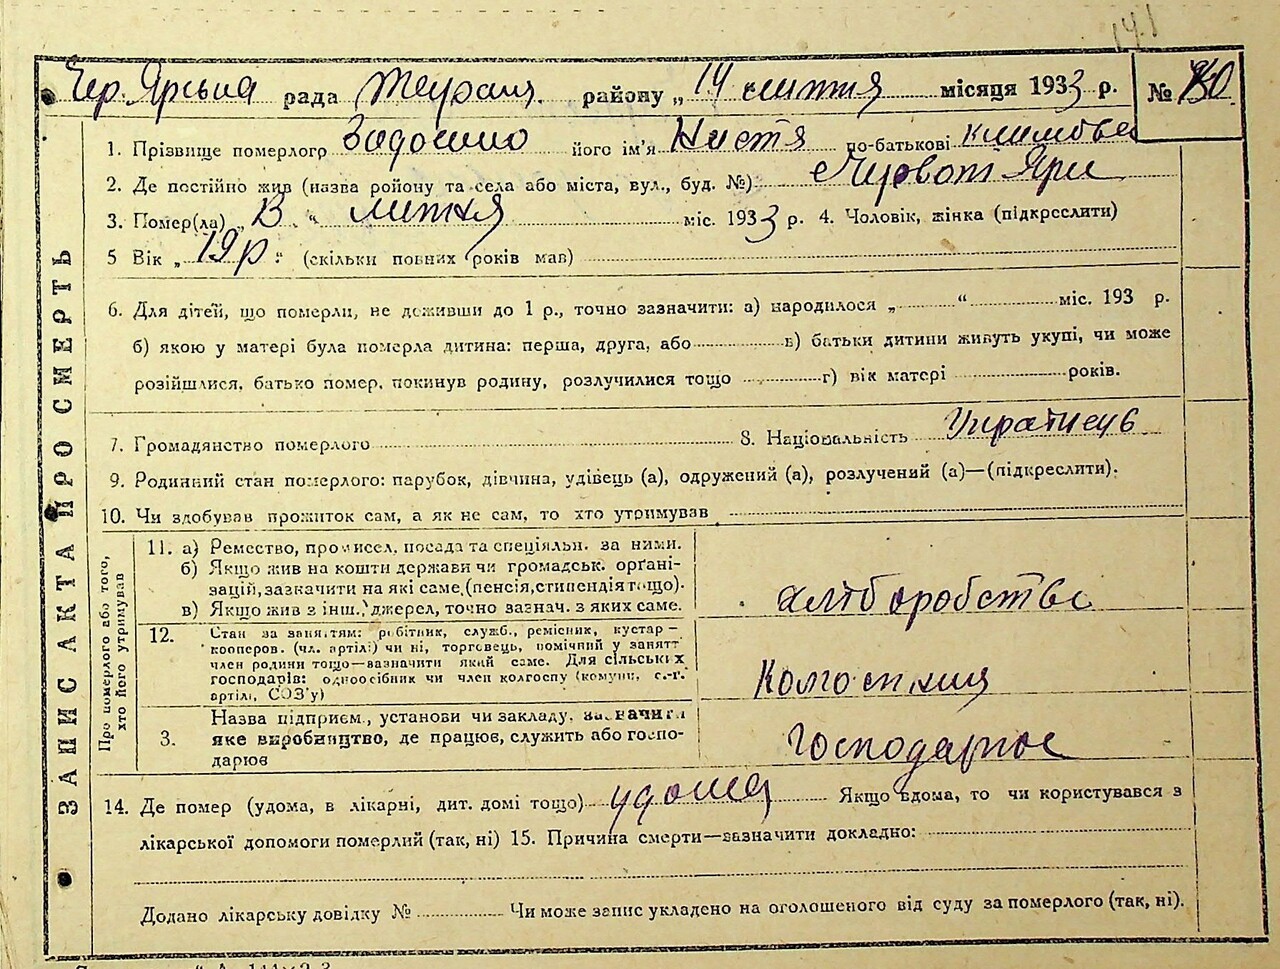 141
Чер. Ярська рада район. району „14 липня місяця 1933 р. № 80
1. Прізвище померлого його ім'я Настя по-батькові
2. Де постійно жив (назва ройону та села або міста, вул., буд. №) Яри
3. Помер(ла) „ “ липня міс. 1933 р. 4. Чоловік, жінка (підкреслити)
5 Вік „19 р.“ (скільки повних років мав)
6. Для дітей, що померли, не доживши до 1 р., точно зазначити: а) народилося „ “ міс. 193 р.
б) якою у матері була померла дитина: перша, друга, або в) батьки дитини живуть укупі, чи може
розійшлися, батько помер, покинув родину, розлучилися тощо г) вік матері років.
7. Громадянство померлого 8. Національність
9. Родинний стан померлого: парубок, дівчина, удівець (а), одружений (а), розлучений (а)—(підкреслити).
10. Чи здобував прожиток сам, а як не сам, то хто утримував
ЗАПИС АКТА ПРО СМЕРТЬ
Про померлого або того,
хто його утримував
11. а) Ремество, промисел, посада та спеціяльн. за ними.
б) Якщо жив на кошти держави чи громадськ. орґані-
зацій, зазначити на які саме (пенсія, стипендія тощо).
в) Якщо жив з інш. джерел, точно зазнач. з яких саме.
12. Стан за занятям: робітник, служб., ремісник, кустар—
кооперов. (чл. артілі) чи ні, торговець, помічний у занятт
член родини тощо—зазначити який саме. Для сільських
господарів: одноосібник чи член колгоспу (комуни, с.-г.
артілі, СОЗ'у)
3. Назва підприєм., установи чи закладу, зазначити
яке виробництво, де працює, служить або госпо-
дарює
14. Де помер (удома, в лікарні, дит. домі тощо) удома Якщо вдома, то чи користувався з
лікарської допомоги померлий (так, ні) 15. Причина смерти—зазначити докладно:
Додано лікарську довідку № Чи може запис укладено на оголошеного від суду за померлого (так, ні).